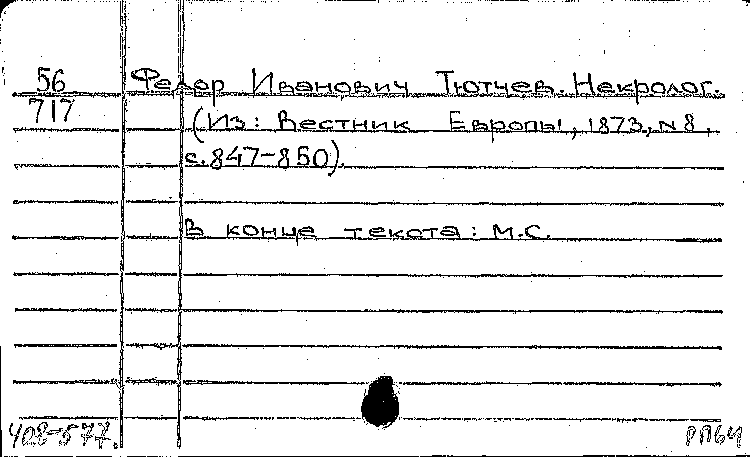 56
717
Федор Иванович Тютчев. Некролог.
(Из: Вестник Европы, 1873, N 8,
с. 847-850).
В конце текста: М.С.
408-577.
РПБ4